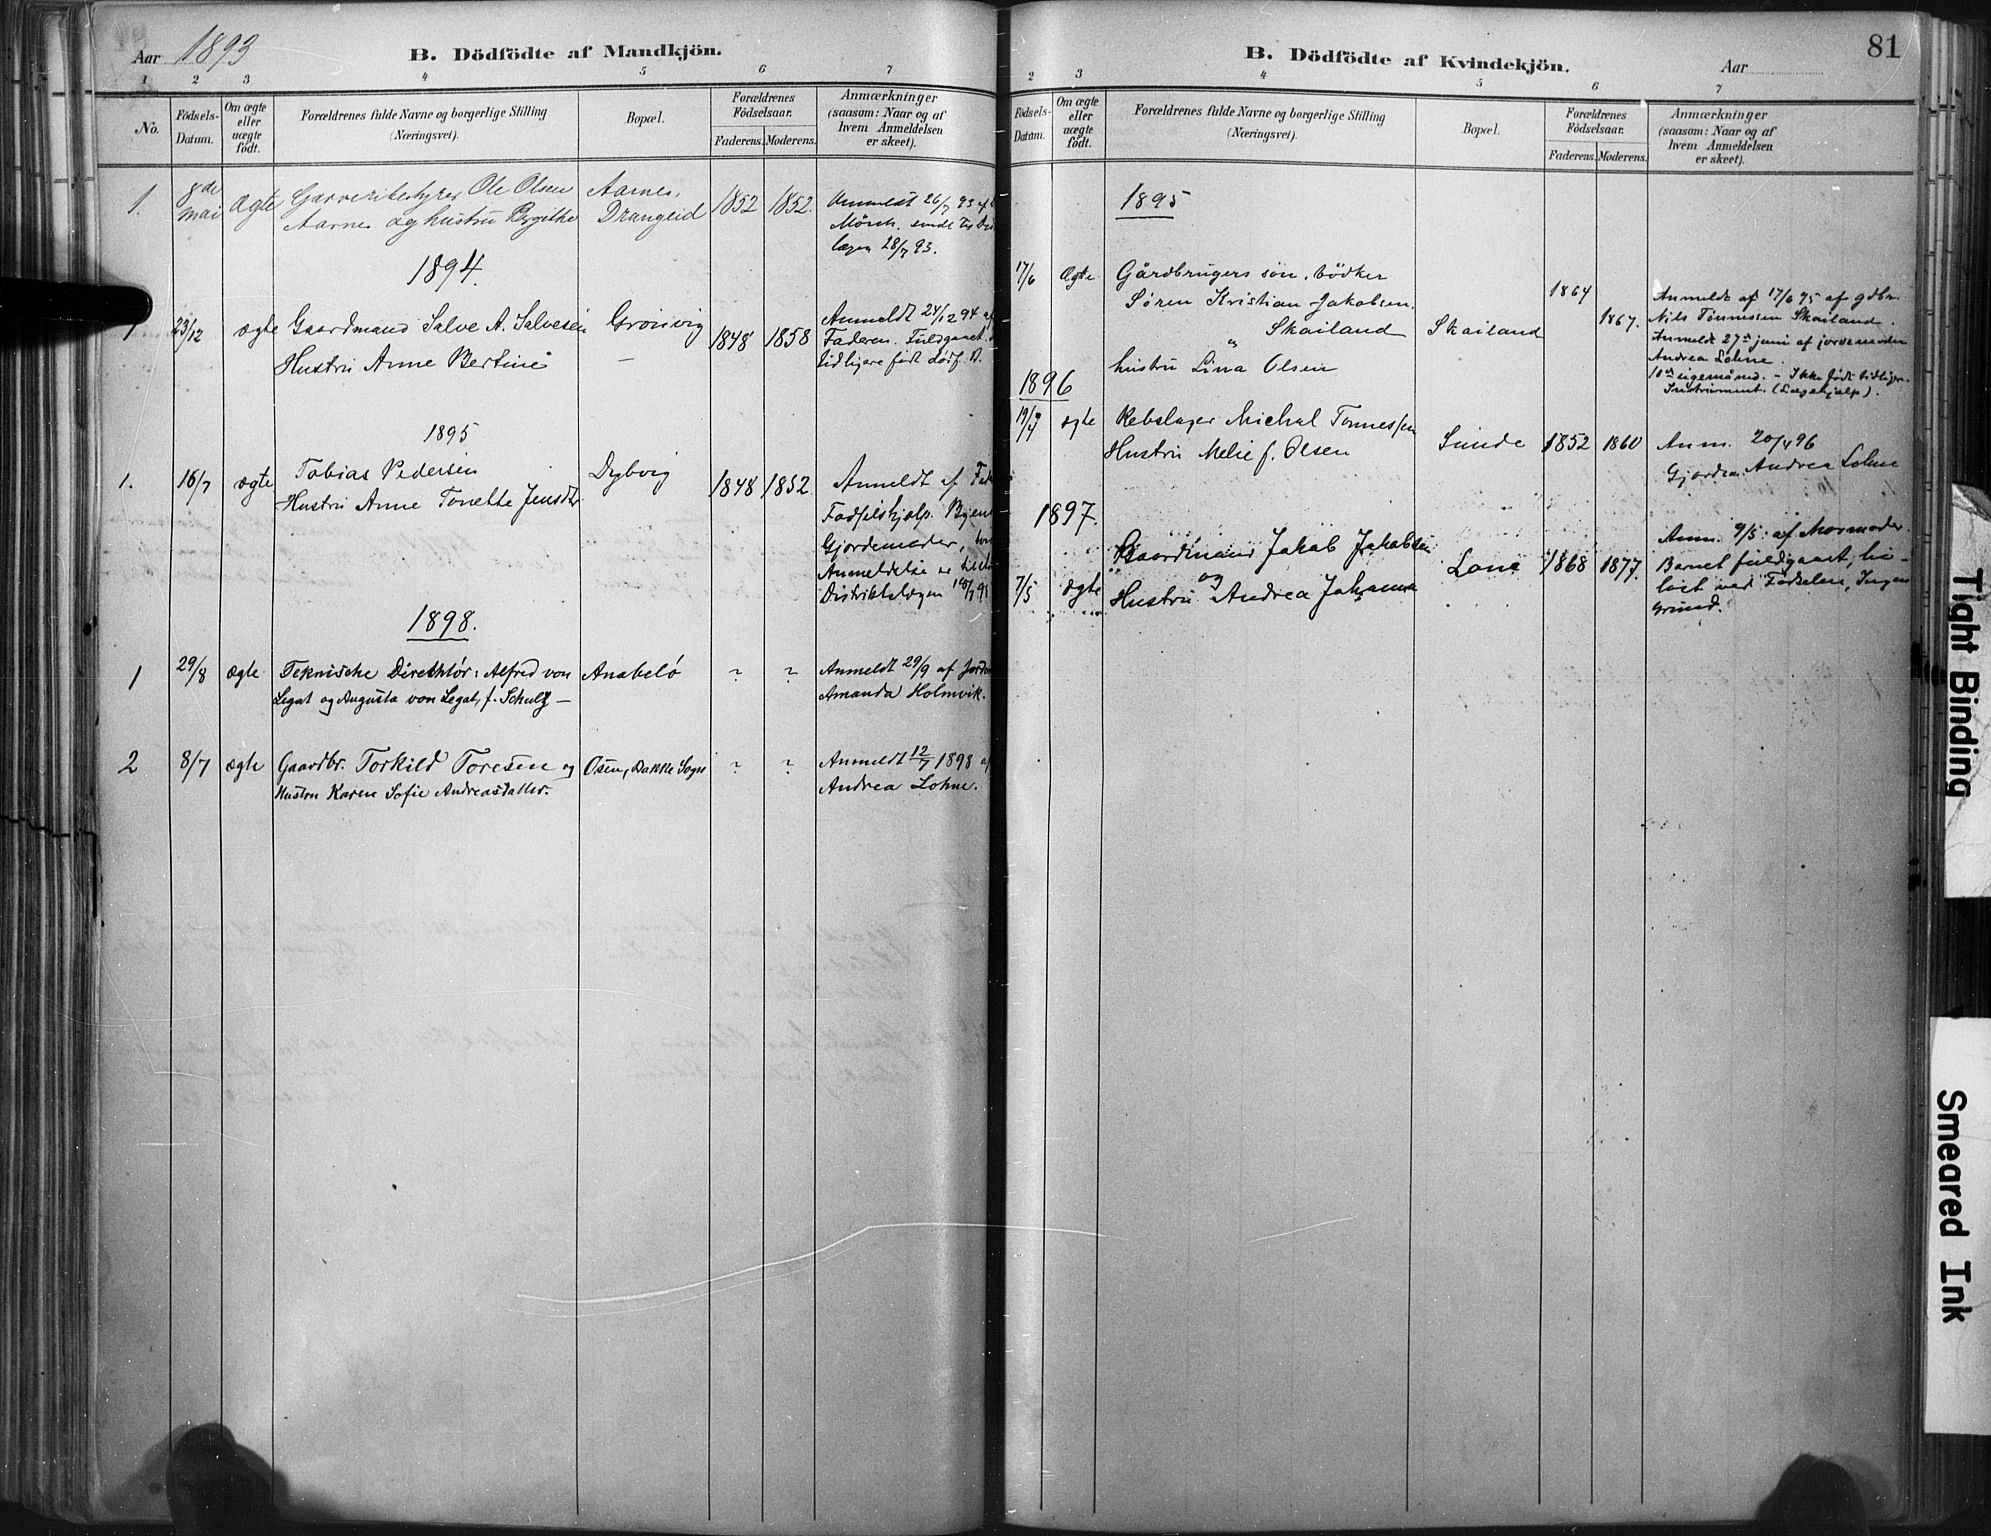 Aar 1893
B. Dödfödte af Mandkjön.
1 2 3 4 5 6 7
No.
Födsels-
Datum.
Om ægte
eller
uægte
födt.
Forældrenes fulde Navne og borgerlige Stilling
(Næringsvei).
Bopæl.
Forældrenes
Födselsaar.
Faderens. Moderens.
Anmærkninger
(saasom: Naar og af
hvem Anmeldelsen
er skeet).
1. 8de
mai
ægte
Garveribestyrer Ole Olsen
Aarnes og hustru Birgithe
Aarnes,
Drangeid
1852 1852.
Anmeldt 26/7 93 af
Mörch. sendt
28/7 93.
1894.
1 23/12 ægte
Gaardmand Salve A. Salvesen
Hustru Anne Bertine
Grönvig
1848 1858
Anmeldt 24/12 94 af
Faderen. Fuldgaaet.
tidligere født dødf. B.
1895
1. 16/7 ægte
Tobias Pedersen
Hustru Anne Tonette Jensdtr
Dybvig
1848 1852.
Anmeldt af
Fødselshjelp.
Gjordemoder,
Anmeldelse
Distriktslægen
1898.
1 29/8 ægte
Teknische Direktör: Alfred von
Legat og Augusta von Legat, f. Schulz –
Anabelö
? ?
Anmeldt 29/9 af Jordm
Amanda Holmvik.
2 8/7 ægte
Gaardbr. Torkild Toresen og
Hustru Karen Sofie Andreasdatter.
Osen, Bakke Sogn
? ?
Anmeldt 12/7 1898 af
Andrea Lohne.
B. Dödfödte af Kvindekjön.
Aar
81
2 3 4 5 6 7
Födsels-
Datum.
Om ægte
eller
uægte
födt.
Forældrenes fulde Navne og borgerlige Stilling
(Næringsvei).
Bopæl.
Forældrenes
Födselsaar.
Faderens. Moderens.
Anmærkninger
(saasom: Naar og af
hvem Anmeldelsen
er skeet).
1895
17/6 Ægte
Gårdbrugers søn, bödker
Søren Kristian Jakobsen
Skailand
hustru Lina Olsen
Skailand
1864
1867.
Anmeldt af 17/6 95 af gdbr.
Nils Tönnessen Skailand.
Anmeldt 27de juni af jordemoder
Andrea Lohne.
– Ikke født tidligere.
Instrument. (Lægehjelp).
1896
19/4 ægte
Rebslager Michal Tønnessen
Hustru Melie f. Olsen
Sunde
1852 1860
Anm. 20/4 96
Gjordem. Andrea Lohne
1897.
7/5 ægte
Gaardmand Jakob Jakobsen
og
Hustru Andrea Johanna
Lone
1868 1877.
Anm. 9/5. af Mormoder.
Barnet fuldgaaet, liv-
løst ved Fødselen, Ingen
Grund.
Tight Binding
Smeared Ink